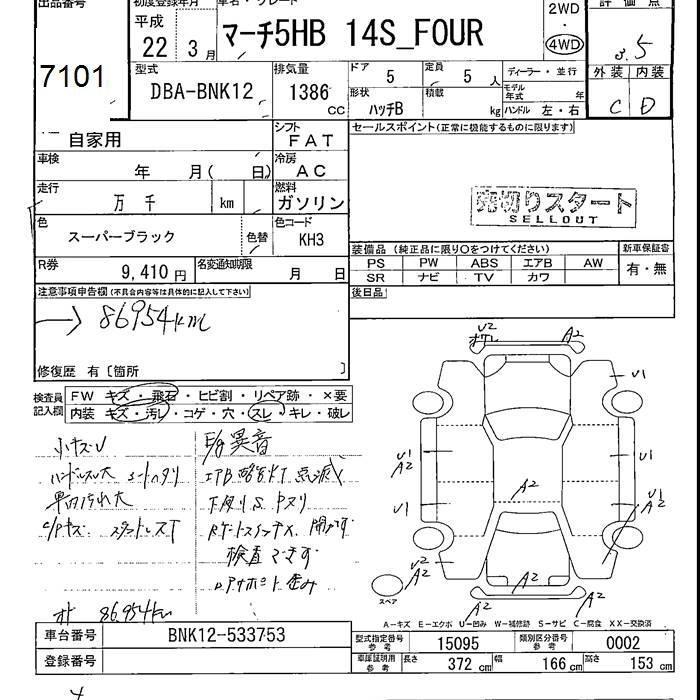 出品番号 初度登録年月 車名・グレード 評価点
平成
22年 3月 マーチ5HB 14S_FOUR 2WD・4WD 3.5
7101 型式 DBA-BNK12 排気量 1386 CC
ドア 5 定員 5人 ディーラー・並行 外装 内装
形状 ハッチB 積載 kg モデル年式 年 C D
ハンドル 左・右
自家用 シフト FAT セールスポイント(正常に機能するものに限ります)
車検 年 月( 日) 冷房 AC
走行 万 千 km 燃料 ガソリン 売切りスタート
SELLOUT
色 スーパーブラック 色替 色コード KH3
装備品 (純正品に限り○をつけてください) 新車保証書
PS PW ABS エアB AW 有・無
SR ナビ TV カワ
R券 9,410円 名変通知期限 月 日
後日品
注意事項申告欄(不具合内容等は具体的に記入して下さい)
→ 86954km
修復歴 有〔箇所 〕
検査員記入欄 FW キズ・飛石・ヒビ割・リペア跡・×要
内装 キズ・汚レ・コゲ・穴・スレ・キレ・破レ
小キズU E/g異音
ハンドルスレ大 シートヘタリ エアB警告灯点滅
車内汚れ大 下廻りS
検査できず
86954km
U2 A2
U1
U1 A2
U1
U1
U1 A2
A2
U2 A2
A2
A2
スペア
A-キズ E-エクボ U-凹み W-補修跡 S-サビ C-腐食 XX-交換済
車台番号 BNK12-533753 型式指定番号 参考 15095 類別区分番号 参考 0002
登録番号 車庫証明用 参考 長さ 372cm 幅 166cm 高さ 153cm